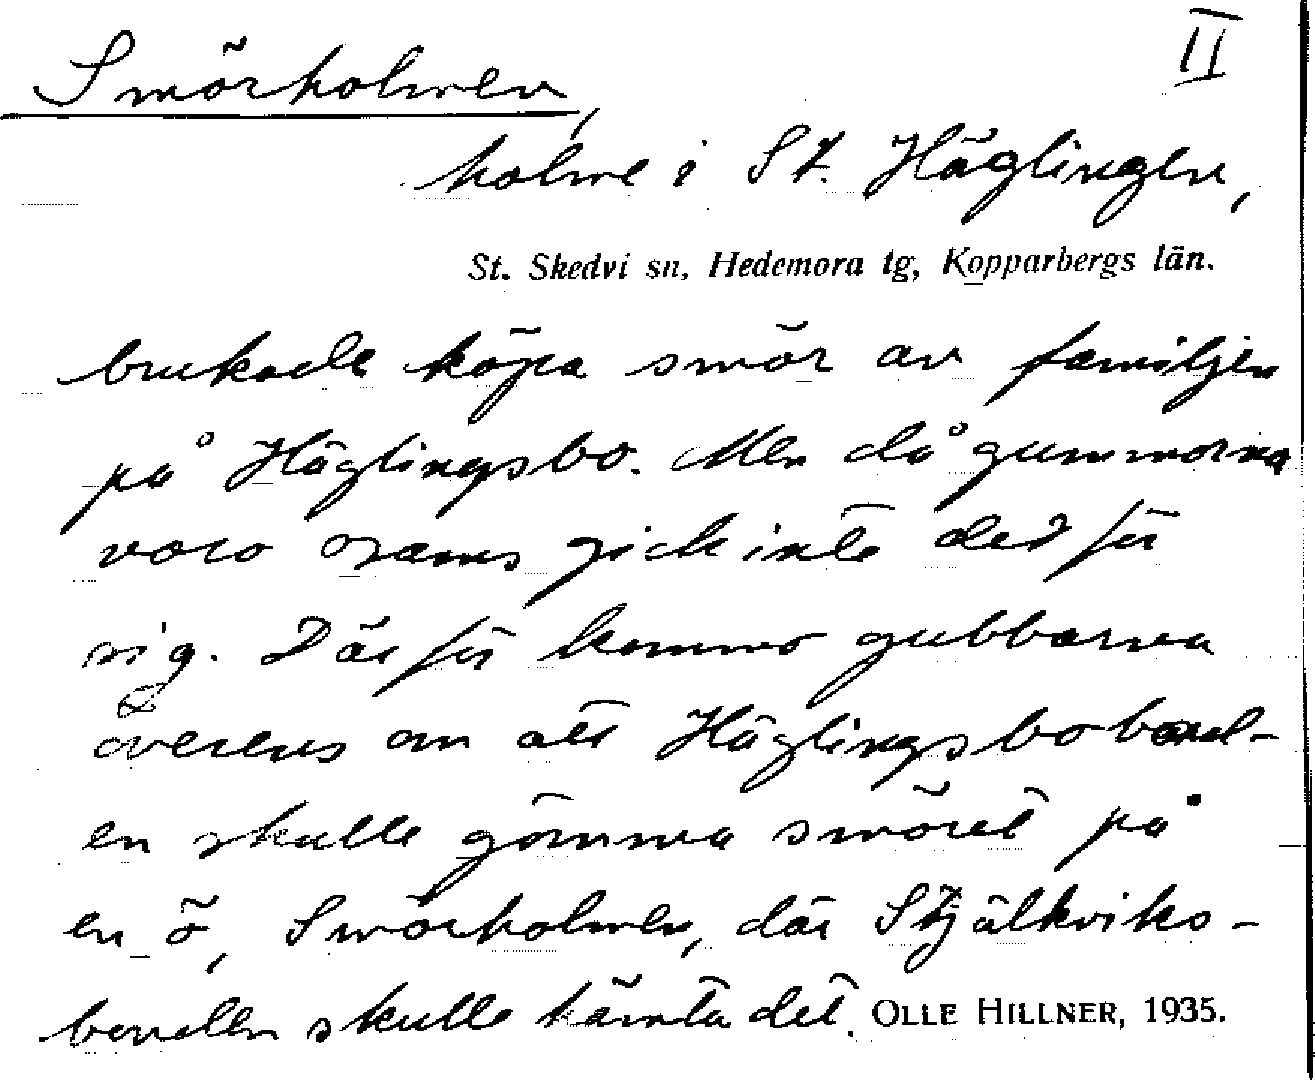 II
Smörholmen,
holme i St. Häglingen,
St. Skedvi sn, Hedemora tg, Kopparbergs län.
brukade köpa smör av familjen
på Häglingsbo. Men då gummorna
voro osams gick inte det för
sig. Därför kommo gubbarna
överens om att Häglingsbobond-
en skulle gömma smöret på
en ö, Smörholmen, där Stjälkviks-
bonden skulle hämta det.
OLLE HILLNER, 1935.